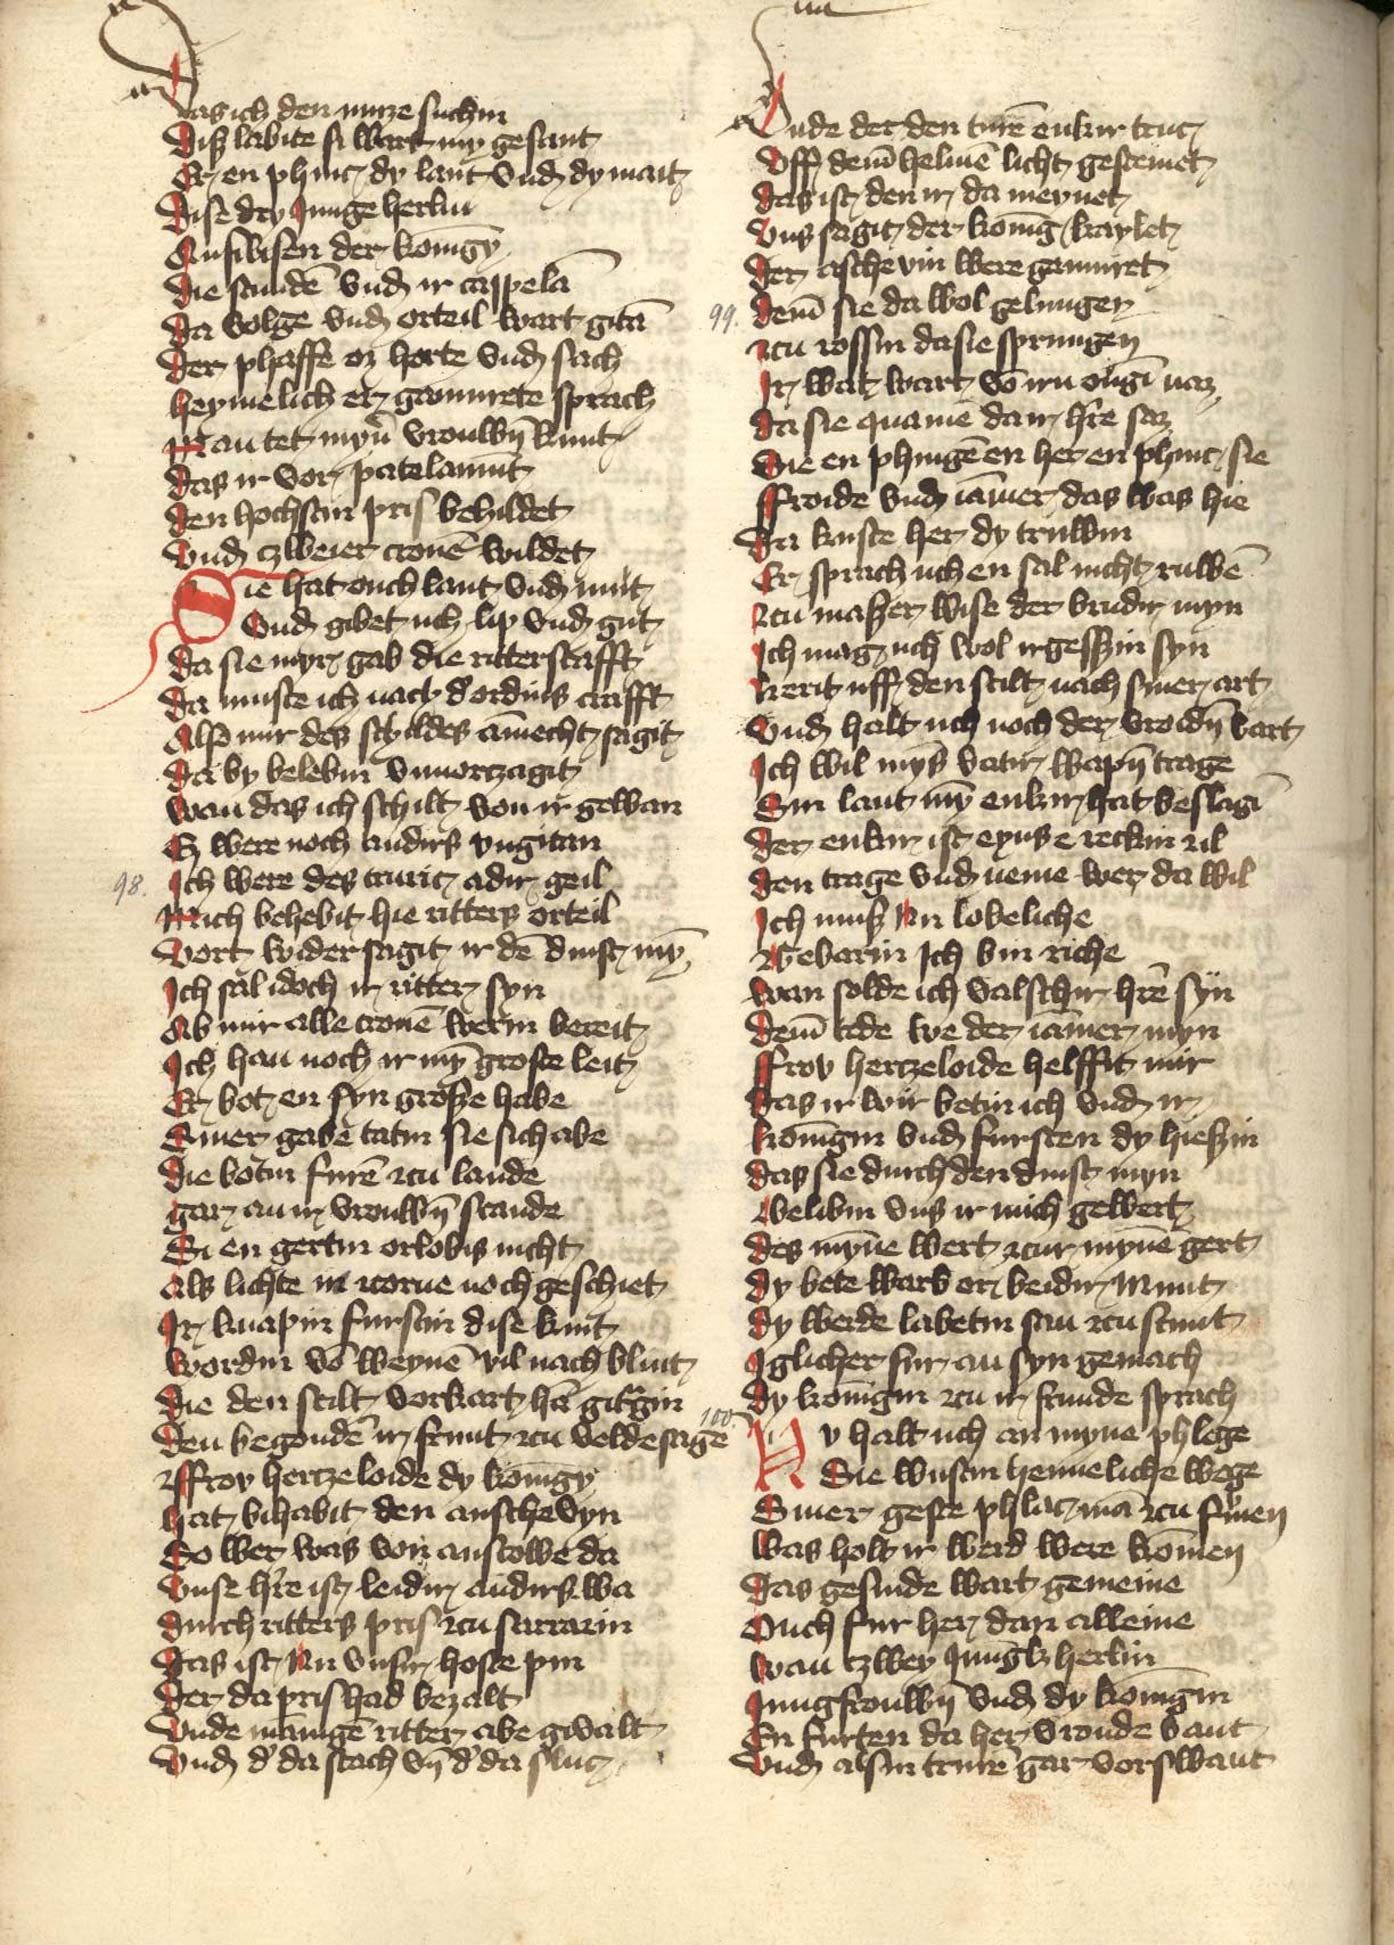 Das ich den nutze suchin
Disz labite si wart my gesant
Er en phinc dy lant vnd dy mait
Dise dry Junge herlin
Ansbisen der konigȳ
Die stundē vnd ir cappelā
Da volge vnd orteil wart gitā
Der phaffe oz horte vnd sach
heymelich er gamurete sprach
Man tet myn̄ vrouwn̄ kunt
Das ir vor patelamūt
Den hochstin pris behildet
Vnd czweier cronē wildet
Sie hat ouch lant vnd mut
Vnd gibet uch lip vnd gut
Da sie myr gab die ritterscafft
Da muste ich nach d' ordins crafft
Also mir des schildes āmecht sagit
Da by belebin vnuorczagit
wan das ich schilt von ir gewan
Ez were noch andirs vngitan
98. Ich were des truric adir geil
Mich behebit hie ritters orteil
Vort widersagit ir dē dinst mȳ
Ich sal idoch ir ritter syn
Ab mir alle cronē werin bereit
Ich han noch ir mȳ groste leit
Er bot en syn grosze habe
Siner gabe tatin sie sich abe
Die botin furē zcu lande
gar an ir vrouwn̄ scande
Si en gertin orlobis nicht
Als lichte in zcorne noch geschiet
Ir knapin furstin dise kint
wordin vō weynē vil nach blint
Die den scilt vorkart hā gitrgin
Den begondē ir frunt zcu velde sagē
ffrov hertzeloide dy konigȳ
hat bihabit den anschevyn
So wer was von anscowe da
Vnse h're ist leidir andirs wa
durch ritters pris zcu sarrazin
Das ist nu vnsir hoste pin
Der da pris had bezalt
Vnde manigē ritter abe givalt
Vnd d' da stach vn̄ d' da sluc
Vnde der den turē enkir truc
Vff dem helmē licht gesteinet
das ist den ir da meynet
Vns sagit der konig kaylet
Der aschevin were gamuret
99. Dem sie da wol gelungen
zcu rossin da sie sprungen
Ir wat wart vō iru ougī naz
da sie quamē da ir h're saz
Die en phingē en her en phinc sie
ffroide vnd iāmer das was hie
Da kuste her dy truwin
Er sprach uch en sal nicht ruwē
zcu maszer wise der brudir myn
Ich mag uch wol irgeszin syn
kerit uff den scilt nach siner art
Vnd halt uch noch der vroidn̄ vart
Ich wil mȳs vatir wapn̄ trage
Sin lant mȳ enkir hat beslagī
der enkir ist eyns e reckin zil
Den trage vnd neme wer da wil
Ich musz nu lobeliche
Gebarin Ich bin riche
wan solde ich valschir h're syn
dem tede we der iamer myn
ffrov hertzeloide helffit mir
das ir wir betin ich vnd ir
konigin vnd fursten dy hieszin
das sie durch den dinst myn
belibin vns ir mich gewert
des mȳne wert zcur mȳne gert
dy bete warb er beidir munt
dy werde labetin san zcu stunt
Iglicher fur an syn gemach
dy konigin zcu ir frunde sprach
100. Nv halt uch an myne phlege
Sie wustin heimeliche wege
Siner geste phlac mā zcu frmen
was holt ir werd were komen
das gesinde wart gemeine
Ouch fur her dan alleine
wan czwey Jungh herlin
Jungfrouwn̄ vnd dy konigin
En furten da her vroude vant
Vnd alsin trurē gar vorswant